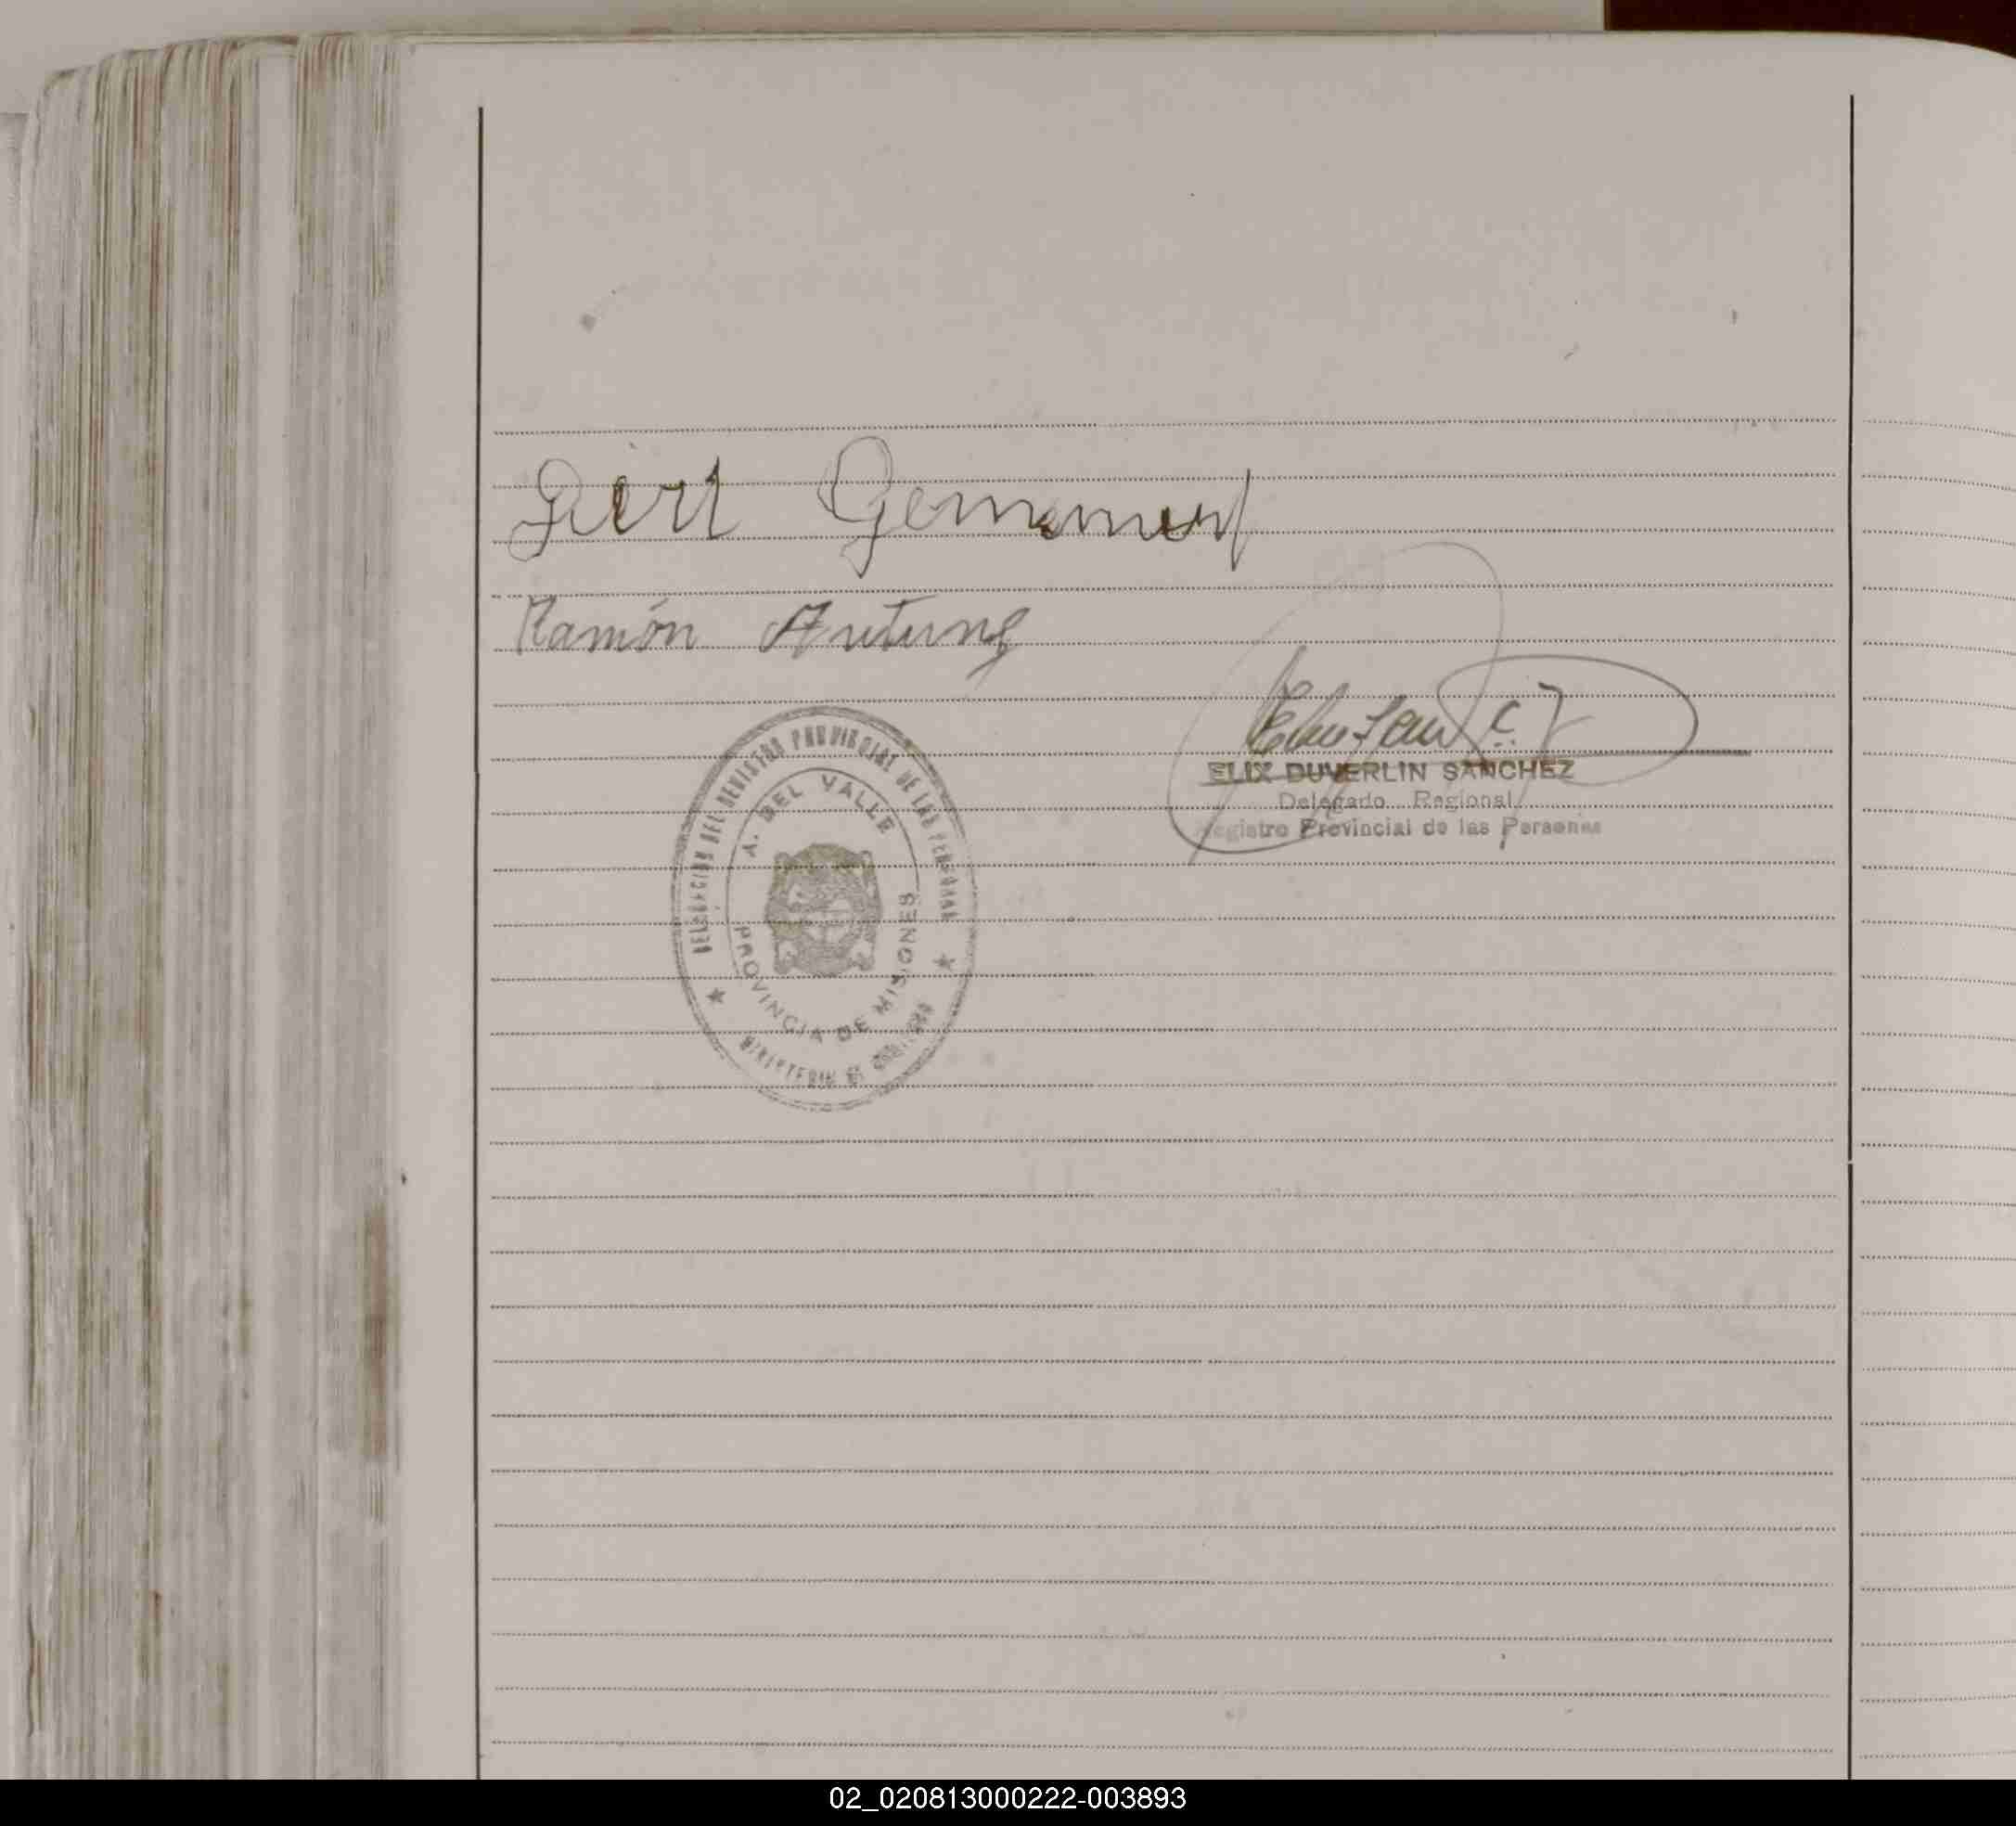 Ramón Antunez
ELIX DUVERLIN SANCHEZ
Delegado Regional
Registro Provincial de las Personas
DELEGACION DEL REGISTRO PROVINCIAL DE LAS PERSONAS
A. DEL VALLE
PROVINCIA DE MISIONES
MINISTERIO DE GOBIERNO
02_020813000222-003893